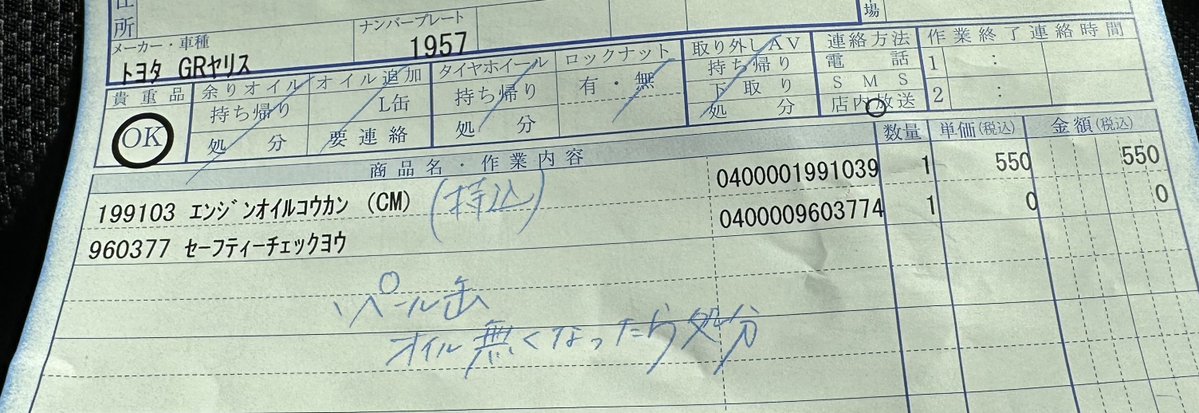 住所
場
メーカー・車種
トヨタ GRヤリス
ナンバープレート
1957
貴重品
OK
余りオイル
持ち帰り
処分
オイル追加
L缶
要連絡
タイヤホイール
持ち帰り
処分
ロックナット
有・無
取り外しAV
持ち帰り
下取り
処分
連絡方法
電話
SMS
店内放送
作業終了連絡時間
1 :
2 :
商品名・作業内容 数量 単価(税込) 金額(税込)
199103 エンジンオイルコウカン (CM) (持込) 0400001991039 1 550 550
960377 セーフティーチェックヨウ 0400009603774 1 0 0
ペール缶
オイル無くなったら処分